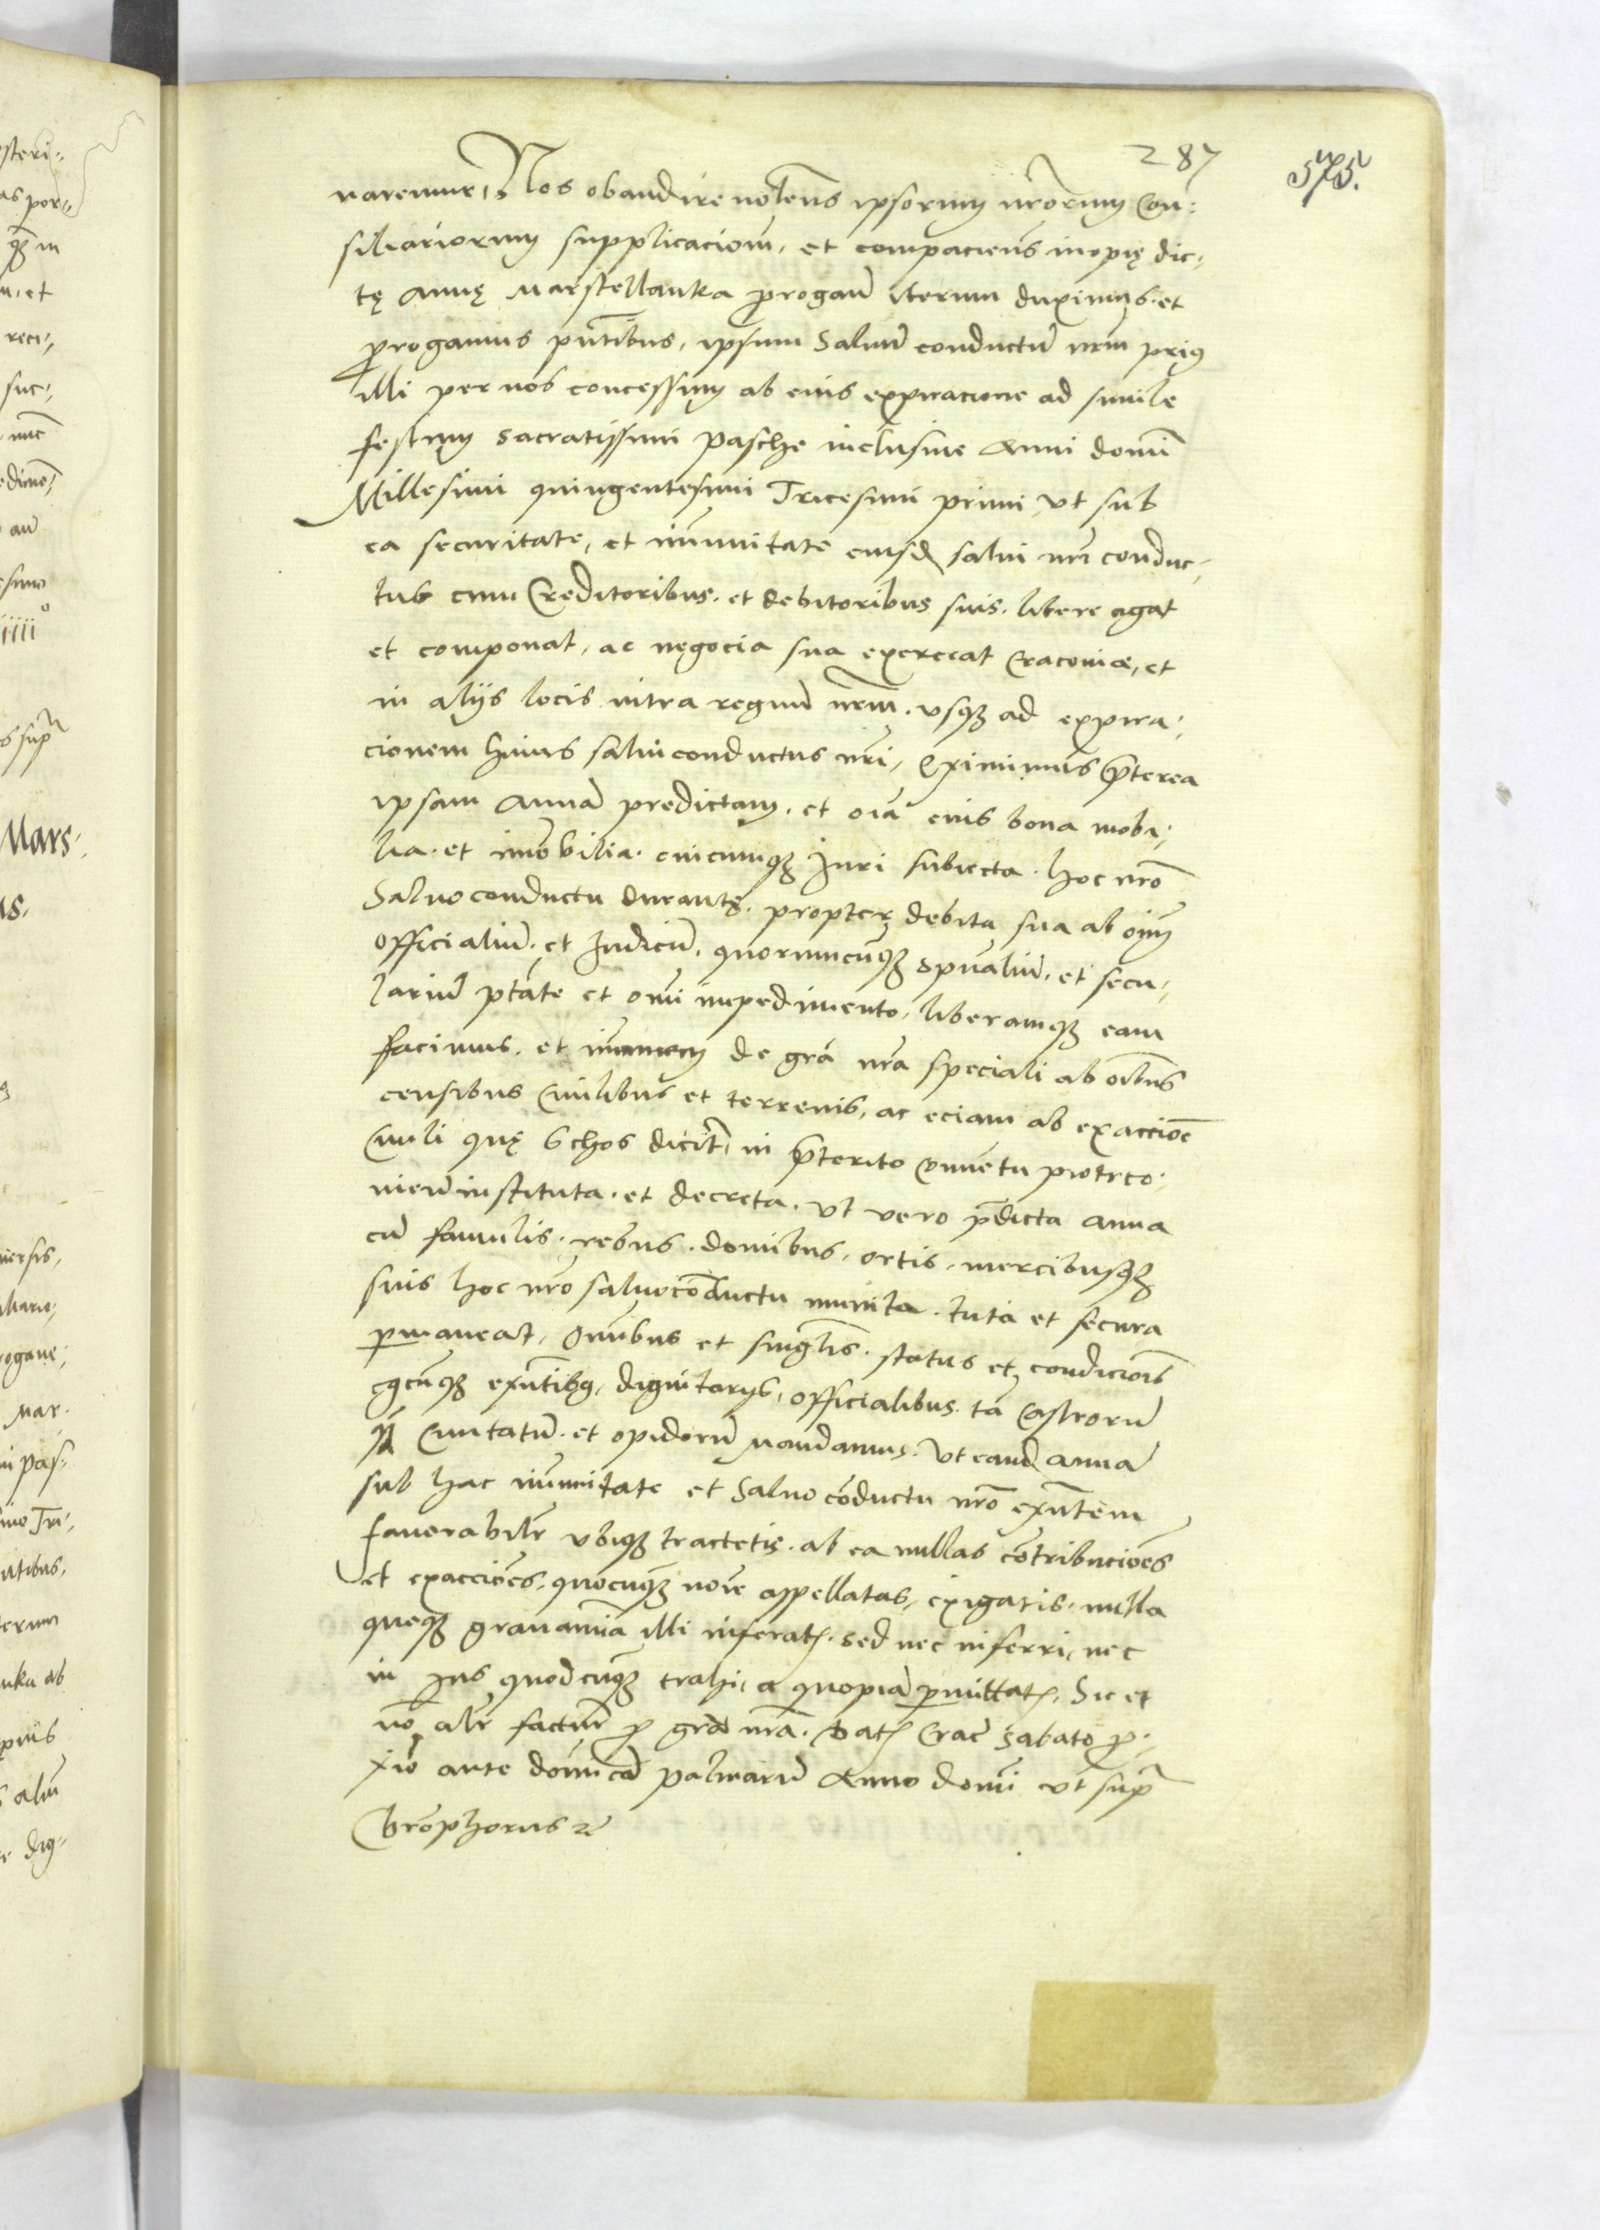 287
575.
naremur, Nos obaudire nolens ipsorum nrorum Con,
siliariorum supplicacioni, et compaciens inopię dic,
tę Annę Marstellanka progand iterum duximus, et
progamus pntibus, ipsum Salvum conductum nrm prius
illi per nos concessum ab eius expiracione ad simile
festum sacratissimi Pasche inclusive Anni domi
Millesimi quingentesimi Tricesimi primi, ut sub
ea securitate, et immunitate eiusd salvi nri conduc,
tus cum Creditoribus, et debitoribus suis, libere agat
et componat, ac negocia sua exerceat Cracoviæ, et
in alijs locis intra regnum nrm, usq ad expira,
cionem huius salvi conductus nri, Eximimus preterea
ipsam Annam predictam, et oia eius bona mobi,
lia, et imobilia, cuicumq Juri subiecta, hoc nro
Salvo conductu durante, propter debita sua ab oim
officialium, et Judicum, quorumcunq spualium, et secu,
larium ptate et omi impedimento, liberamq eam
facimus, et immunem de gra nra speciali ab oibus
censibus Civilibus et terrenis, ac eciam ab exaccioe
Civili quę Schos dicitr, in preterito Conventu piotrco,
vien instituta, et decreta, ut vero predicta Anna
cum famulis, rebus, domibus, ortis, mercibusq
suis hoc nro salvoconductu munita, tuta et secura
permaneat, Omnibus et singlis, status et condicionis
cqcunq exntibus, dignitarijs, officialibus, tam Castrorum
qm Civitatum, et opidorum mandamus, Ut eand Annam
sub hac immunitate et Salvo conductu nro exntem
faverabilr ubiq tractetis, ab ea nullas contribucioes
et exaccioes, quocunq noie appellatas, exigatis, nulla
queq gravamina illi inferatis, sed nec inferri, nec
in Jus quodcunq trahi, a quopiam permittatis, Sic et
no alr factur pro gra nra, Dat Crac Sabato pro,
ximo ante dominicam palmarum Anno domi ut supra
Crophorus